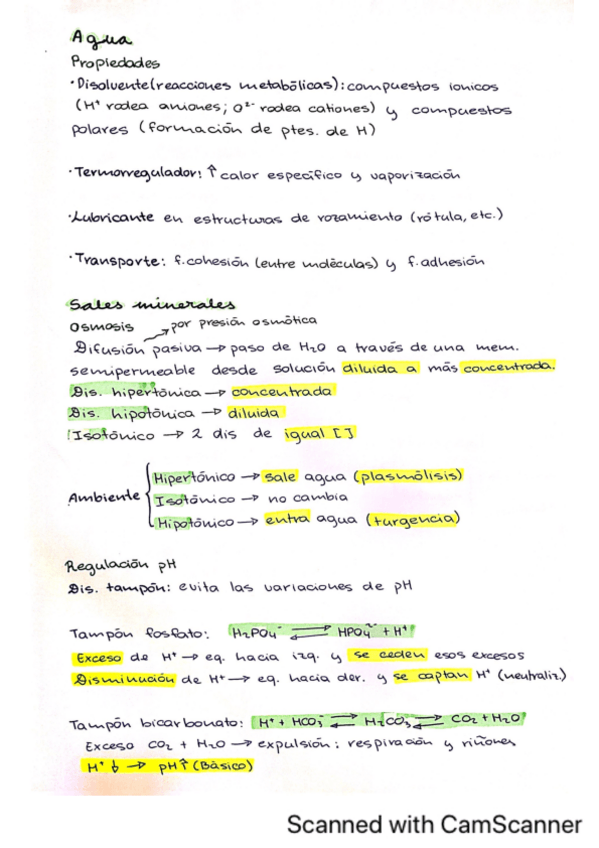 Agua
Propiedades
·Disolvente (reacciones metabólicas): compuestos iónicos
(H⁺ rodea aniones; O²⁻ rodea cationes) y compuestos
polares (formación de ptes. de H)
·Termorregulador: ↑ calor específico y vaporización
·Lubricante en estructuras de rozamiento (rótula, etc.)
·Transporte: f.cohesión (entre moléculas) y f.adhesión
Sales minerales
Osmosis → por presión osmótica
Difusión pasiva → paso de H₂O a través de una mem.
semipermeable desde solución diluida a más concentrada.
Dis. hipertónica → concentrada
Dis. hipotónica → diluida
Isotónico → 2 dis de igual []
Hipertónico → sale agua (plasmólisis)
Ambiente { Isotónico → no cambia
Hipotónico → entra agua (turgencia)
Regulación pH
Dis. tampón: evita las variaciones de pH
Tampón fosfato: H₂PO₄⁻ ⇌ HPO₄²⁻ + H⁺
Exceso de H⁺ → eq. hacia izq. y se ceden esos excesos
Disminución de H⁺ → eq. hacia der. y se captan H⁺ (neutraliz.)
Tampón bicarbonato: H⁺ + HCO₃⁻ ⇌ H₂CO₃ ⇌ CO₂ + H₂O
Exceso CO₂ + H₂O → expulsión: respiración y riñones
H⁺ ↓ → pH ↑ (Básico)
Scanned with CamScanner